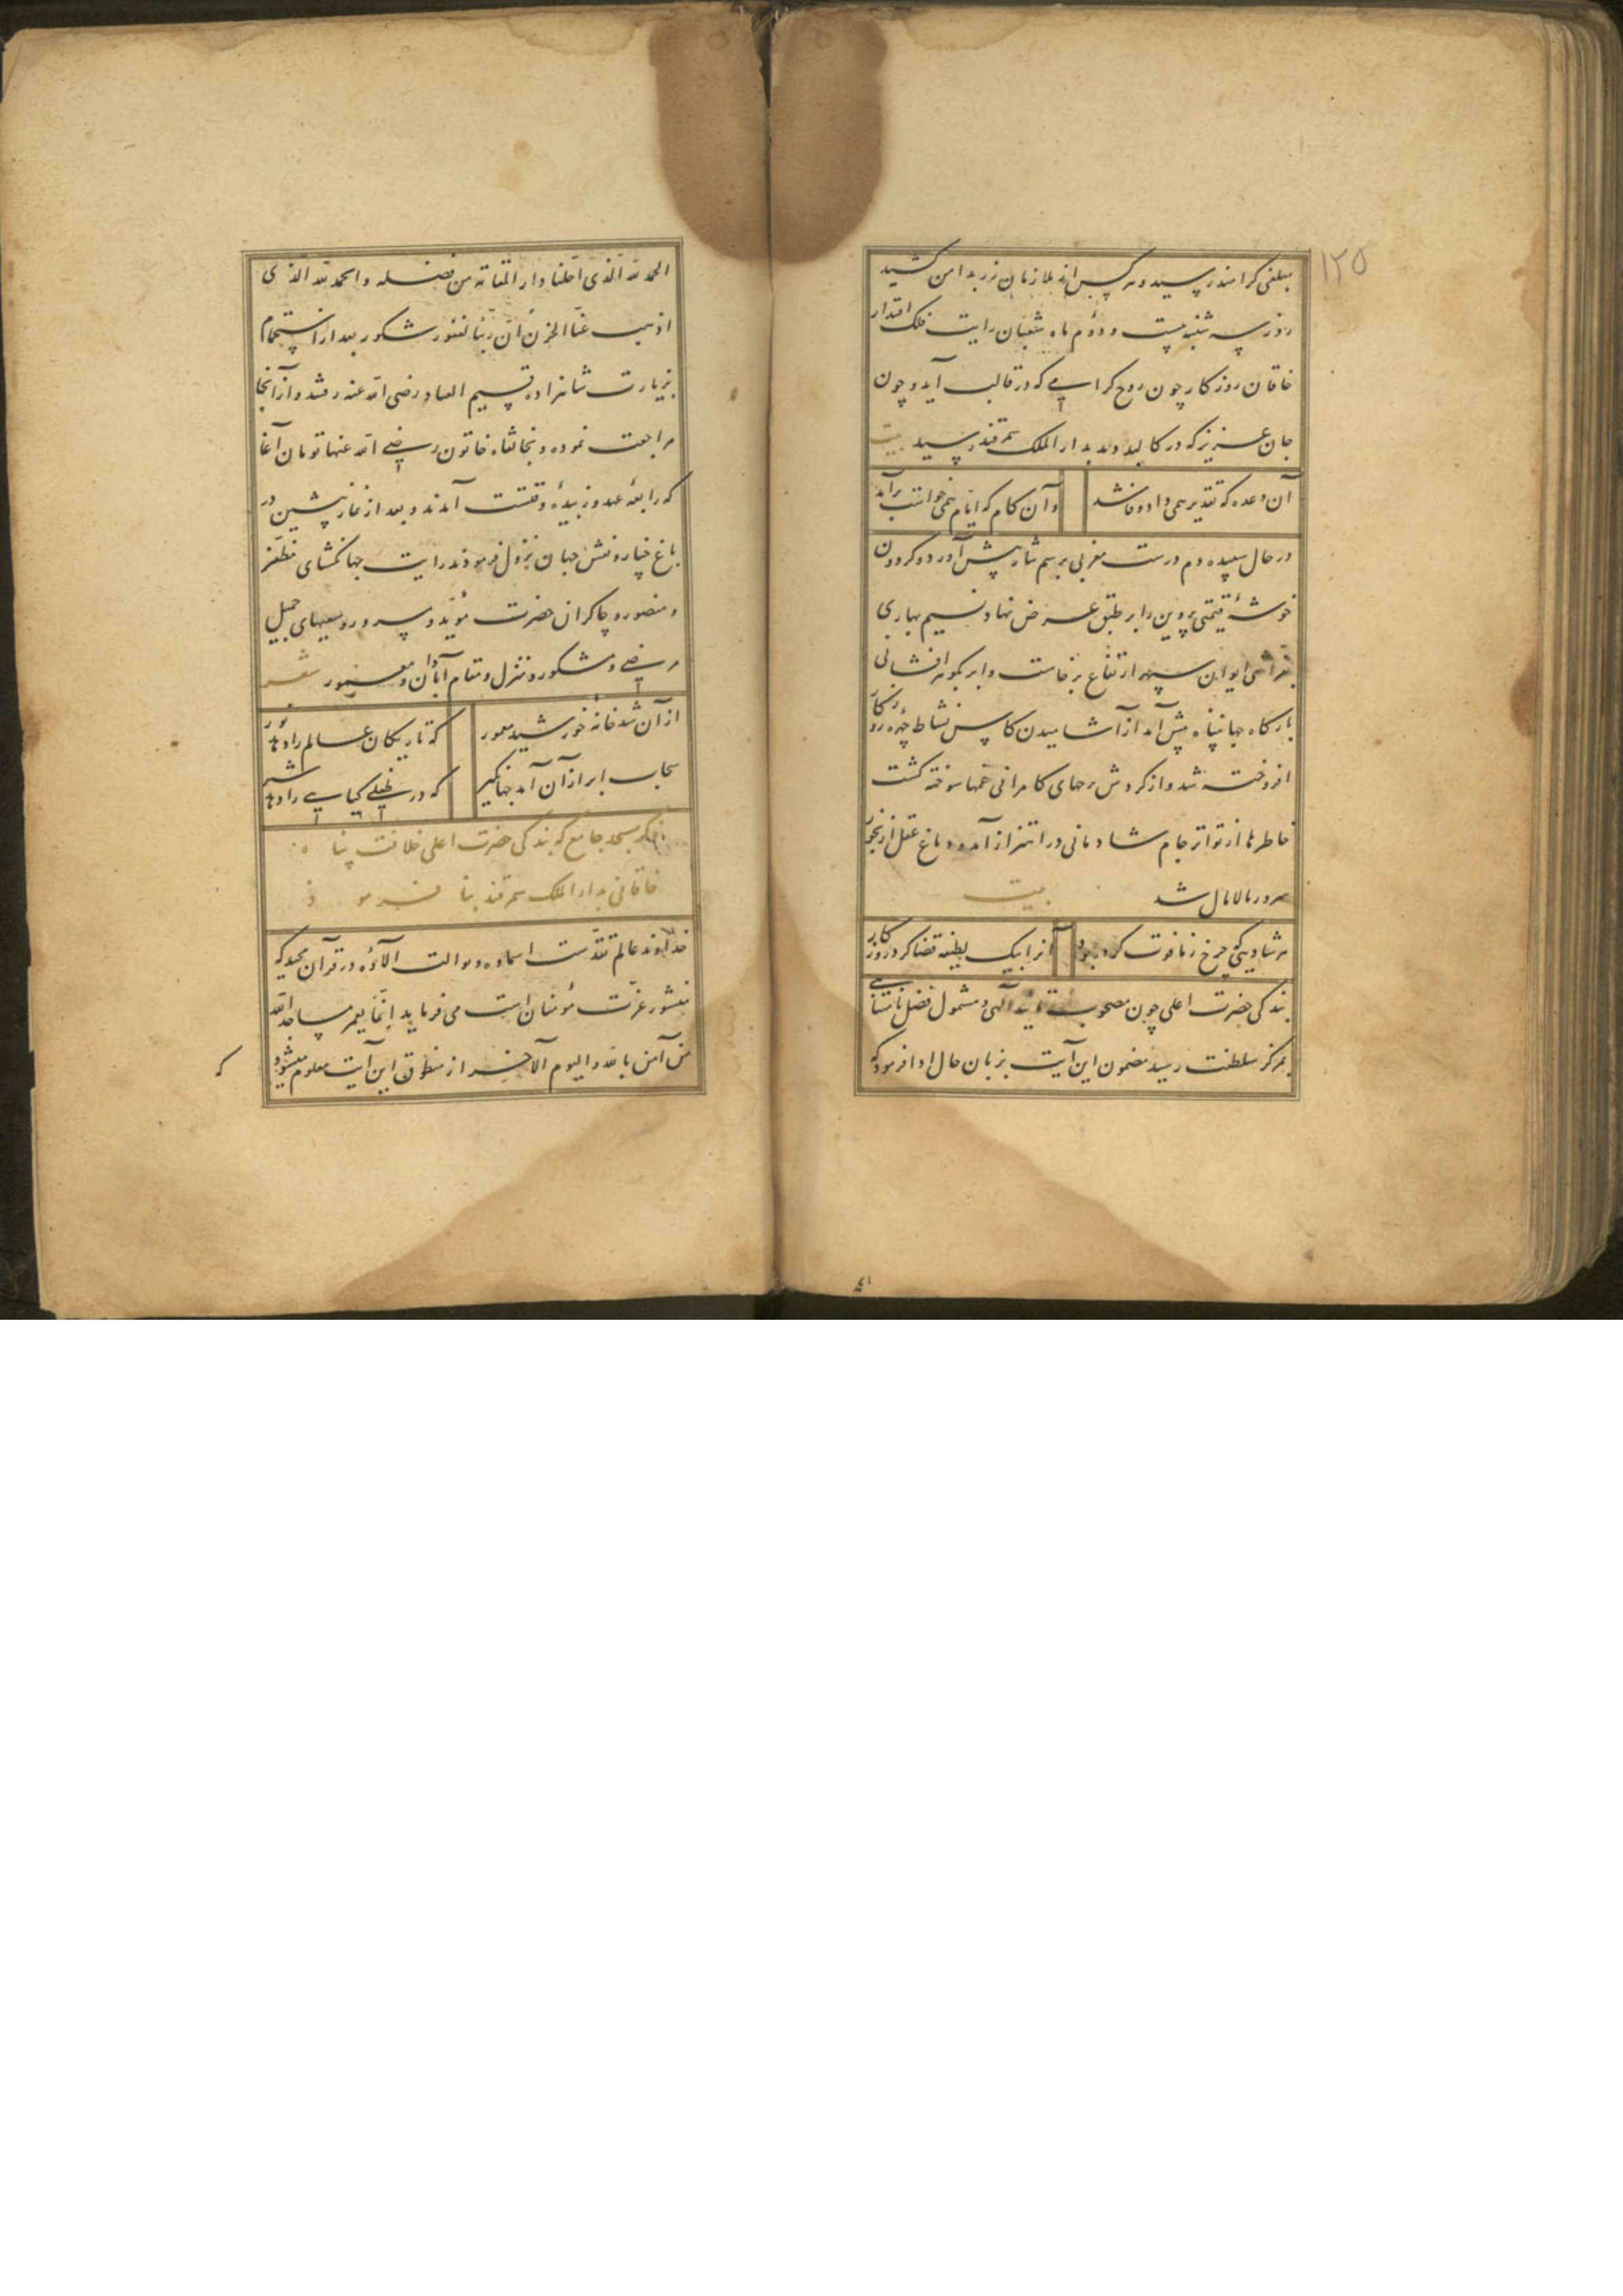 ١٢٥
مبلغی کرامند رسید و هر کس از ملازمان زر بدامن کشید
روز سه شنبه بیست و دوّم ماه شعبان رایت فلک اقتدار
خاقان روزکار چون روح کرامی که در قالب آید و چون
جان عزیز که در کالبد دمد بدار الملک سمرقند رسید بیت
آن وعده که تقدیر همی داد وفا شد
وآن کام که ایام همی خواست برآمد
در حال سپیده دم درست مغربی برسم نثار پیش آورد و کردون
خوشهٔ قیمتی پروین را بر طبق عرض نهاد و نسیم بهاری
بفراشی ایوان سپهر ارتفاع برخاست و ابر بکوهر افشانی
بارکاه جهانپناه پیش آمد از آشامیدن کاس نشاط چهره روزکار
افروخته شد و از کردش رحهای کامرانی غمها سوخته کشت
خاطرها از تواتر جام شادمانی در اهتزاز آمد و دماغ عقل از بخور
سرور مالامال شد بیت
هر شادیئی که چرخ ز ما فوت کرده بود
آنرا بیک لطیفه قضا کرد روزکار
بندکی حضرت اعلی چون مصحوب تأیید الهی و مشمول فضل نامتناهی
بمرکز سلطنت رسید مضمون این آیت بزبان حال ادا فرمود که
الحمد لله الّذی احلّنا دار المقامة من فضله و الحمد لله الّذی
اذهب عنّا الحزن انّ ربّنا لغفور شکور بعد از استحمام
بزیارت شاهزاده قسیم العباد رضی الله عنه رفتند و از آنجا
مراجعت نموده و بخانقاه خاتون رضی الله عنها تومان آغا
که رابعهٔ عهد و زبیدهٔ وقتست آمدند و بعد از نماز پیشین در
باغ چنار و نقش جهان نزول فرمودند رایت جهانکشای مظفّر
و منصور و چاکران حضرت مؤیّد و مسرور و سعیهای جمیل
مرضی و مشکور و منزل و مقام آبادان و معمور شعر
از آن شد خانهٔ خورشید معمور
که تاریکان عالم را دهد نور
سحاب ابر از آن آمد جهانکیر
که در طفلی کیاهی را دهد شیر
ذکر مسجد جامع که بندکی حضرت اعلی خلافت پناه
خاقانی بدار الملک سمرقند بنا فرمود
خداوند عالم تقدّست اسماؤه و توالت آلاؤه در قرآن مجید که
منشور عزّت مؤمنان است می فرماید انّما یعمر مساجد الله
من آمن بالله و الیوم الآخر از منطوق این آیت معلوم میشود
که